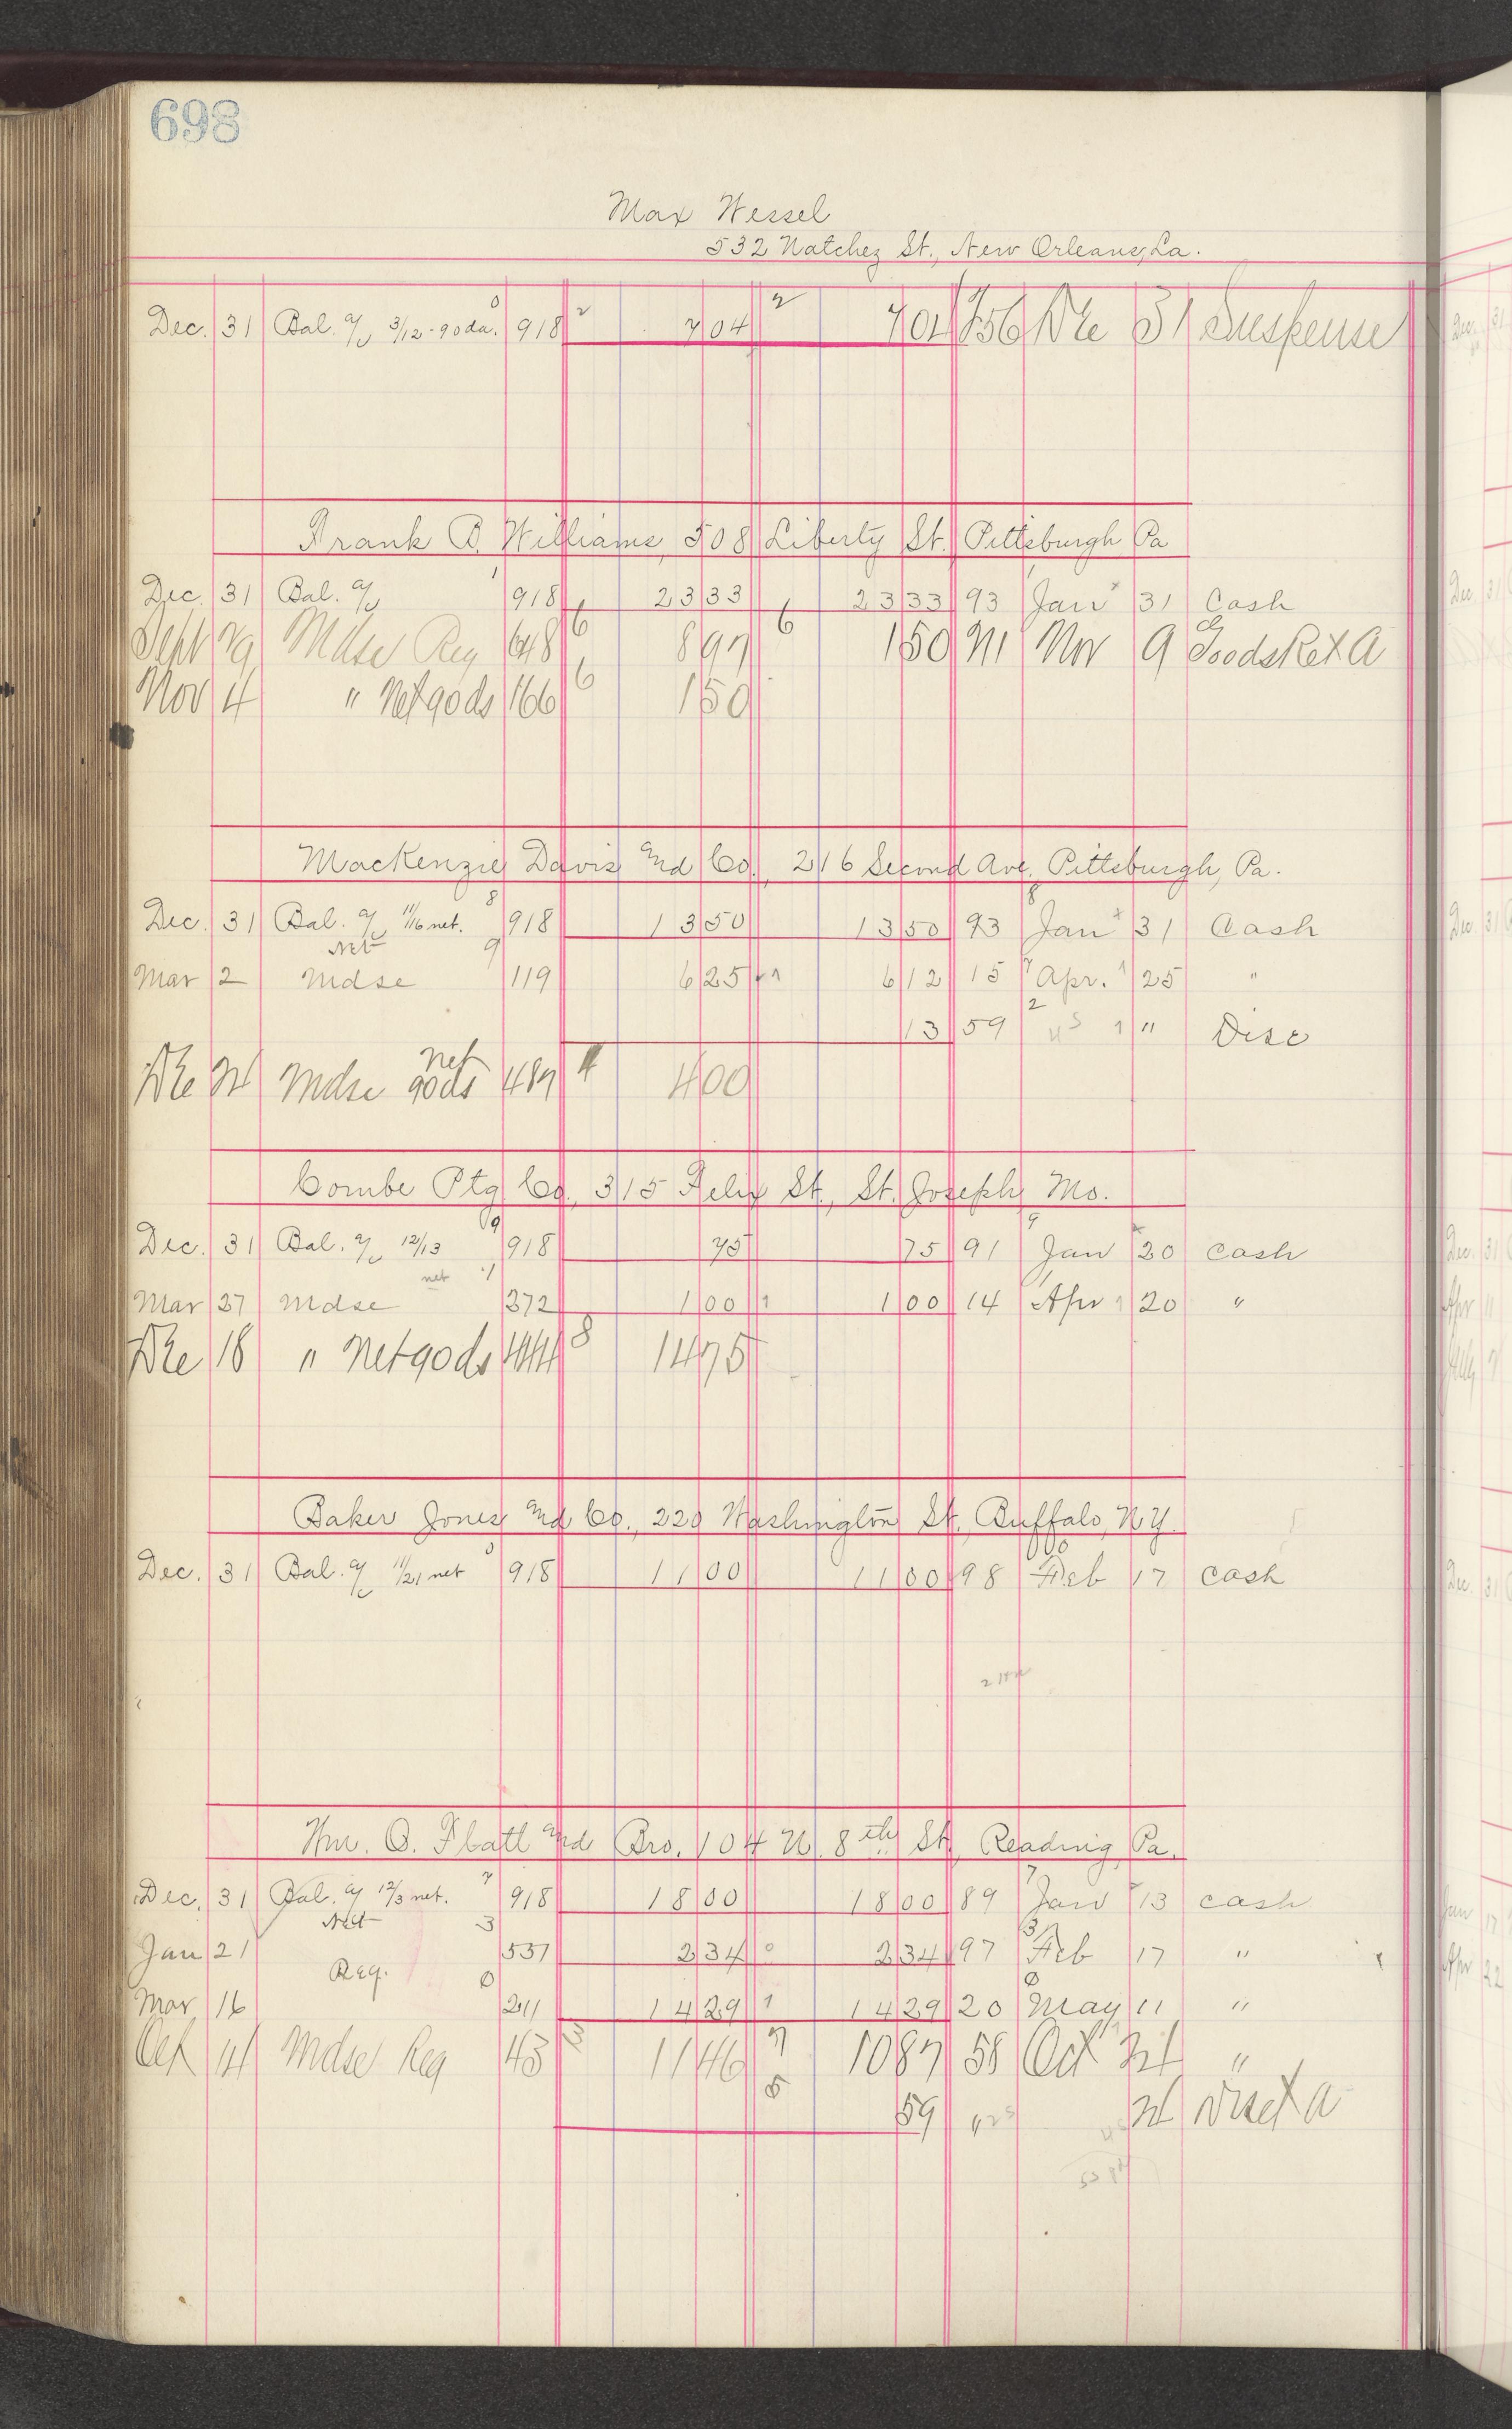 698
Max Wessel
532 Natchez St., New Orleans, La.
Dec. 31 Bal. a/c 3/12 - 90 da. 0 918 2 704 2 704 756 Dec 31 Suspense
Frank B. Williams, 508 Liberty St. Pittsburgh Pa
Dec. 31 Bal. a/c 1 918 2333 2333 93 Jan 31 Cash
Sept 29 Mdse Reg 648 6 897 6 150 711 Nov 9 Goods Ret A
Nov 4 " Net 90ds 166 6 150
MacKenzie Davis and Co., 216 Second Ave. Pittsburgh, Pa.
Dec. 31 Bal. a/c 11/16 net. 8 918 1350 1350 93 Jan 31 Cash
Net 9
Mar 2 Mdse 119 625 612 15 Apr. 25 "
13 59 " Disc
Dec 24 Mdse Net 90ds 487 400
Combe Ptg Co., 315 Felix St., St. Joseph, Mo.
Dec. 31 Bal. a/c 12/13 918 75 75 91 Jan 20 Cash
net
Mar 27 Mdse 372 100 1 100 14 Apr 20 "
Dec 18 " Net 90ds 444 8 1475
Baker Jones and Co., 220 Washington St. Buffalo, N.Y.
Dec. 31 Bal. a/c 11/21 net 918 1100 1100 98 Feb 17 Cash
Wm. O. Flatt and Bro. 104 N. 8th St. Reading Pa.
Dec. 31 Bal. a/c 12/3 net. 7 918 1800 1800 89 Jan 13 Cash
Net 3
Jan 21 537 234 0 234 97 Feb 17 "
Reg. 0
Mar 16 211 1429 1 1429 20 May 11 "
Oct 14 Mdse Reg 43 1146 7 1087 58 Oct 24 "
5 59 " 24 Disct A